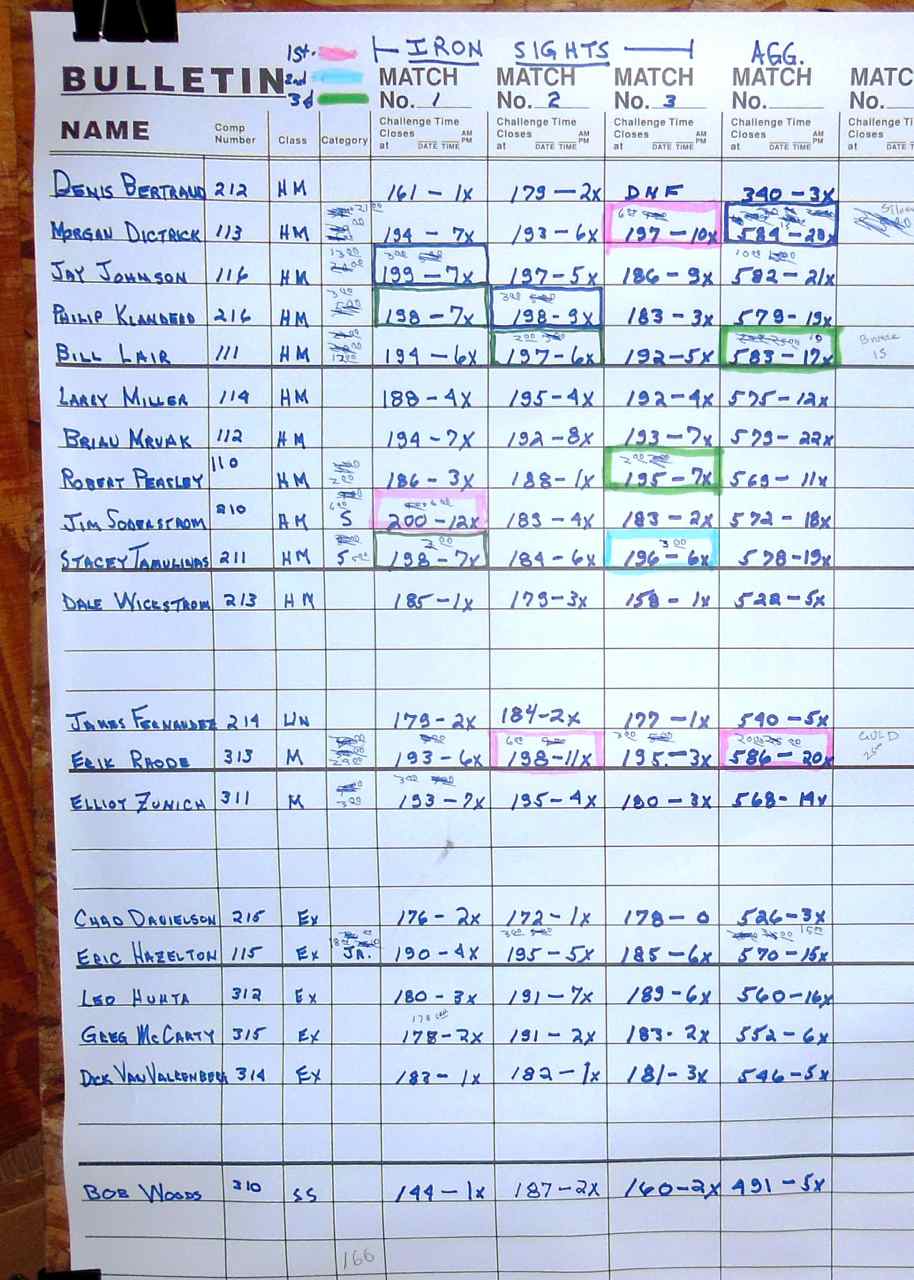 1st. IRON SIGHTS AGG.
BULLETIN 2nd MATCH MATCH MATCH MATCH MATC
3d No. 1 No. 2 No. 3 No. No.
NAME Comp Number Class Category Challenge Time Closes at AM PM DATE TIME Challenge Time Closes at AM PM DATE TIME Challenge Time Closes at AM PM DATE TIME Challenge Time Closes at AM PM DATE TIME Challenge Ti Closes at
DENIS BERTRAUD 212 HM 161 - 1x 179 - 2x DNF 340 - 3x
MORGAN DICTRICK 113 HM 194 - 7x 193 - 6x 197 - 10x 584 - 20x
JAY JOHNSON 116 HM 199 - 7x 197 - 5x 186 - 9x 582 - 21x
PHILIP KLANDERD 216 HM 198 - 7x 198 - 9x 183 - 3x 579 - 19x
BILL LAIR 111 HM 194 - 6x 197 - 6x 192 - 5x 583 - 17x Bronze 15
LARRY MILLER 114 HM 188 - 4x 195 - 4x 192 - 4x 575 - 12x
BRIAN MRVAK 112 HM 194 - 7x 192 - 8x 193 - 7x 579 - 22x
ROBERT PEASLEY 110 HM 186 - 3x 188 - 1x 195 - 7x 569 - 11x
JIM SODERSTROM 210 HM S 200 - 12x 189 - 4x 183 - 2x 572 - 18x
STACEY TAMULINAS 211 HM 5 198 - 7x 184 - 6x 196 - 6x 578 - 19x
DALE WICKSTROM 213 HM 185 - 1x 179 - 3x 158 - 1x 522 - 5x
JAMES FERNANDEZ 214 UN 179 - 2x 184 - 2x 177 - 1x 540 - 5x
ERIK RHODE 313 M 193 - 6x 198 - 11x 195 - 3x 586 - 20x GOLD 25
ELLIOT ZUNICH 311 M 193 - 7x 195 - 4x 180 - 3x 568 - 14x
CHAD DANIELSON 215 EX 176 - 2x 172 - 1x 178 - 0 526 - 3x
ERIC HAZELTON 115 EX JR. 190 - 4x 195 - 5x 185 - 6x 570 - 15x
LEO HUHTA 312 EX 180 - 3x 191 - 7x 189 - 6x 560 - 16x
GREG McCARTY 315 EX 178 - 2x 191 - 2x 183 - 2x 552 - 6x
DICK VANVALKENBERG 314 EX 183 - 1x 182 - 1x 181 - 3x 546 - 5x
BOB WOODS 310 SS 144 - 1x 187 - 2x 160 - 2x 491 - 5x
166